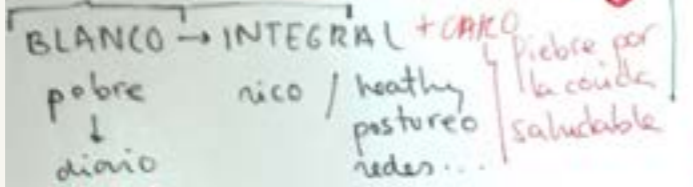 BLANCO → INTEGRAL + CARO
pobre rico / heathy
↓ postureo
diario redes...
Fiebre por
la comida
saludable